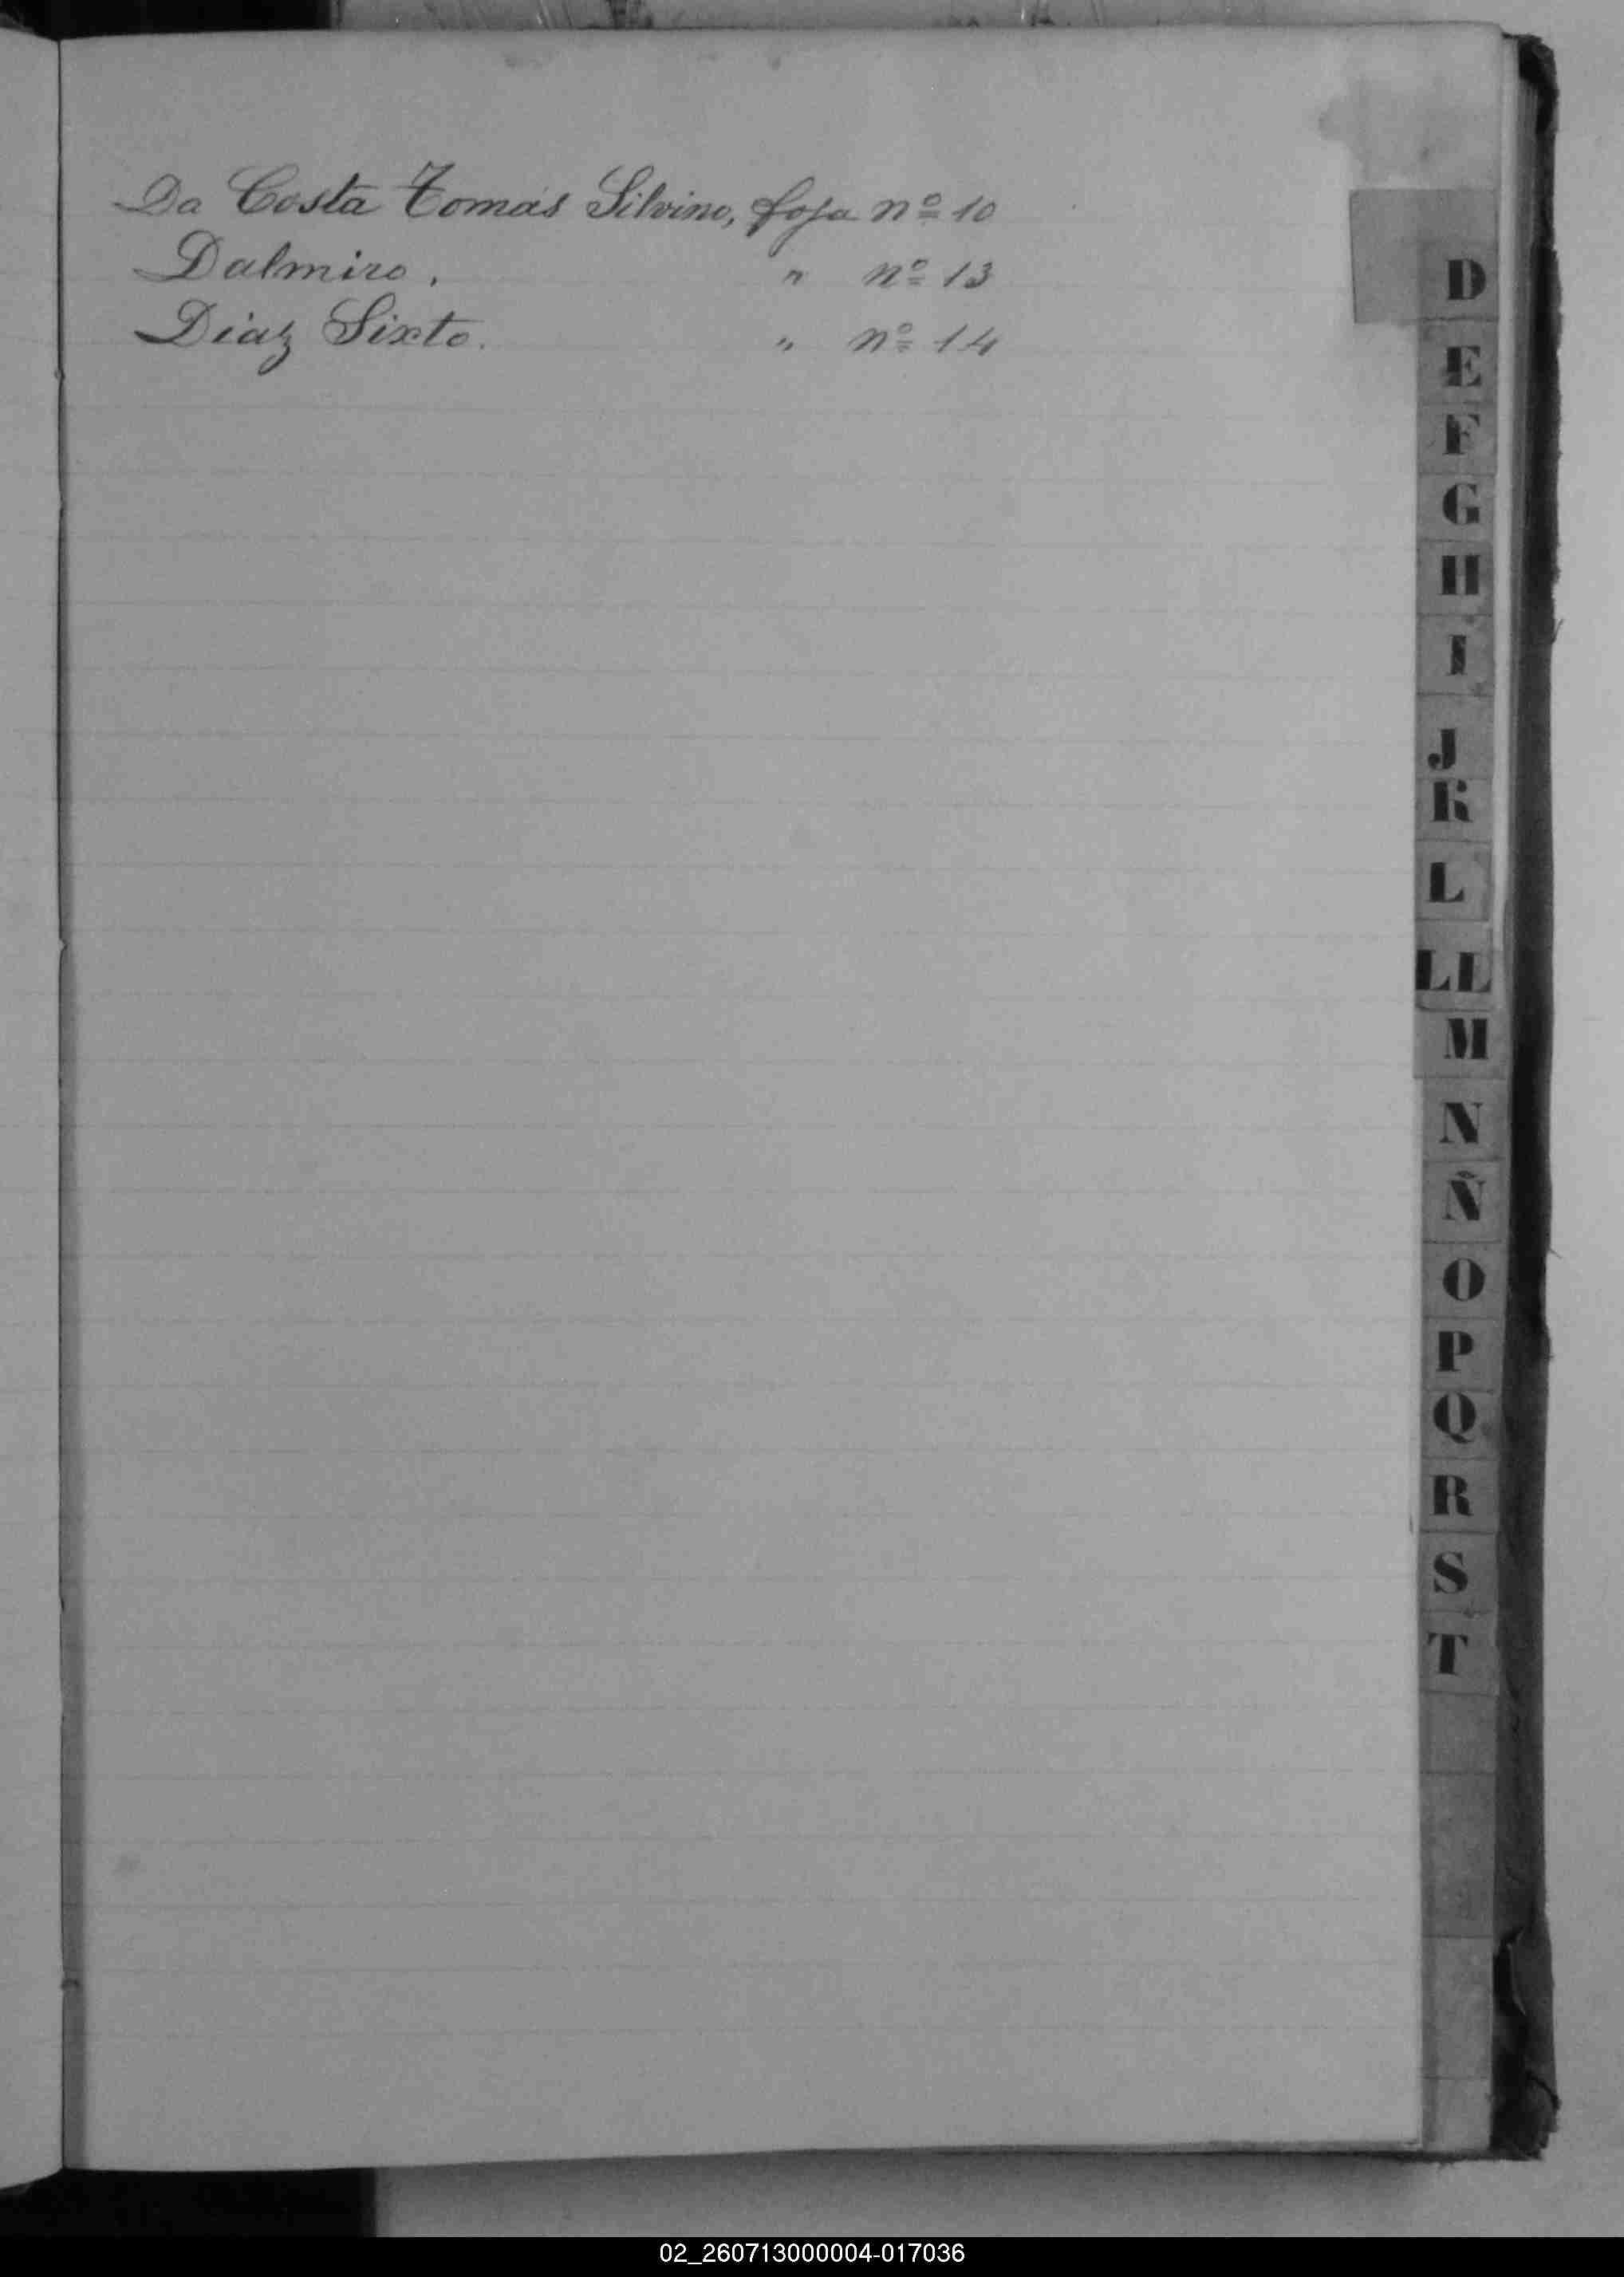 Da Costa Tomás Silvino, foja nº 10
Dalmiro, " nº 13
Diaz Sixto. " nº 14
D
E
F
G
H
I
J
K
L
LL
M
N
Ñ
O
P
Q
R
S
T
02_260713000004-017036